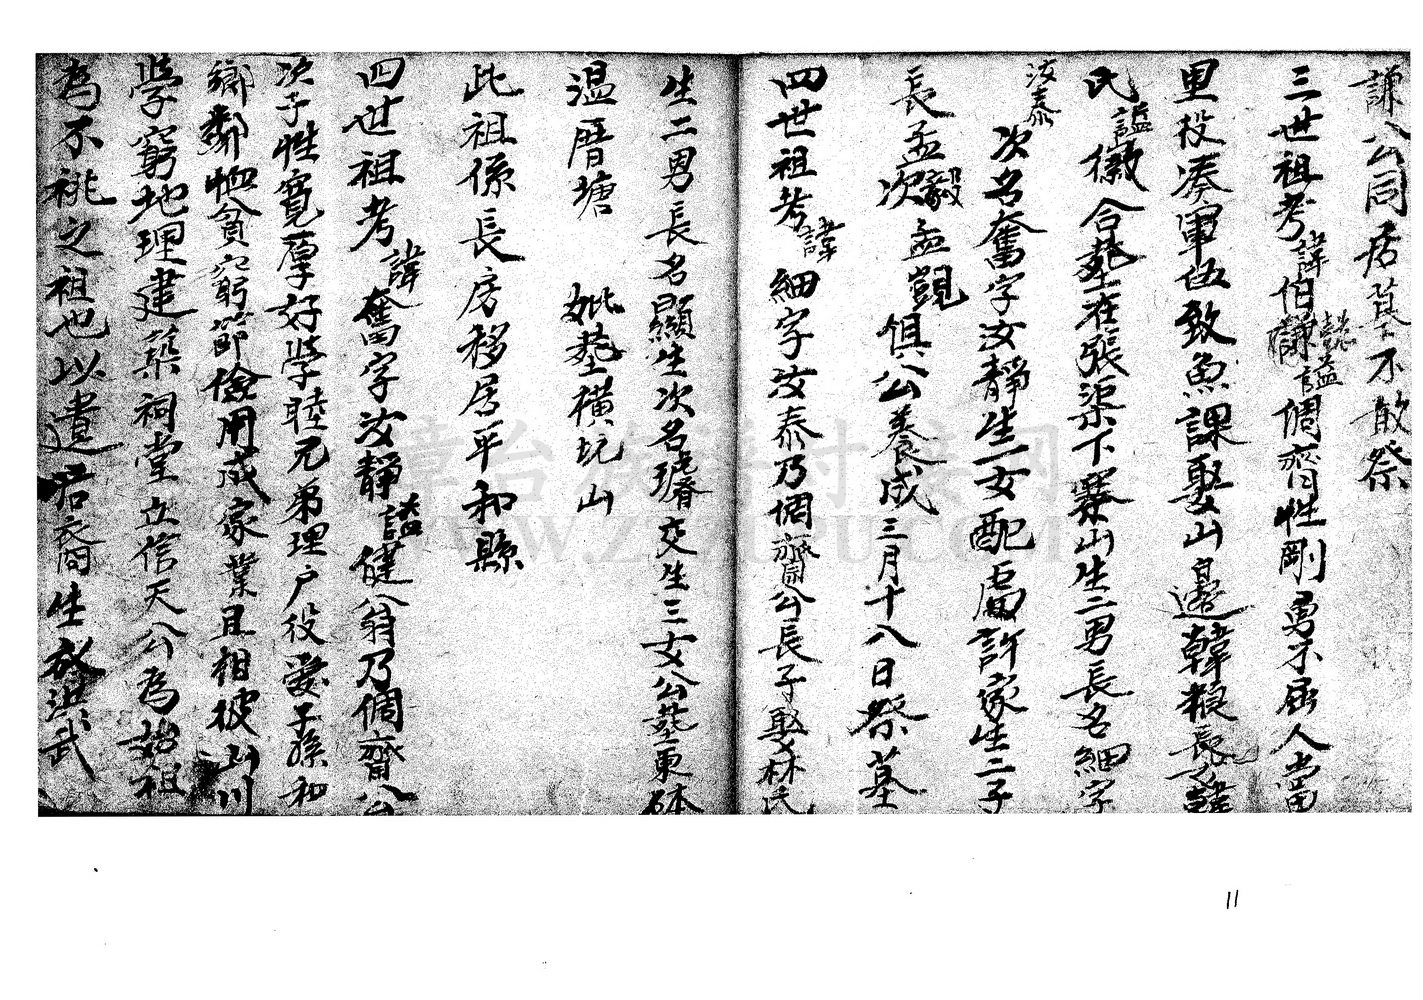 謙公同居墓不敢祭
三世祖考諱伯謙懿謚倜齊性剛勇不屈人當
里役凑軍伍致魚課娶山邊韓粮長諱
氏謚徽合塟在張渠下寨山生二男長名細字
汝泰
次名奮字汝靜生一女配寓許家生二子
長孟毅次孟觀俱公養成三月十八日祭墓
四世祖考諱細字汝泰乃倜齋公長子娶林氏
生二男長名顯生次名璿交生三女公塟東硃
温厝塘 妣塟橫坑山
此祖係長房移居平和縣
四世祖考諱奮字汝靜謚健翁乃倜齋公
次子性寬厚好学睦兄弟理户役愛子孫和
鄉鄰恤貧窮節儉用成家業且相披山川
学窮地理建築祠堂立信天公為始祖
為不祧之祖也以遺后裔生於洪武
章台族譜對接网
WWW.ZTZUPU.COM
11